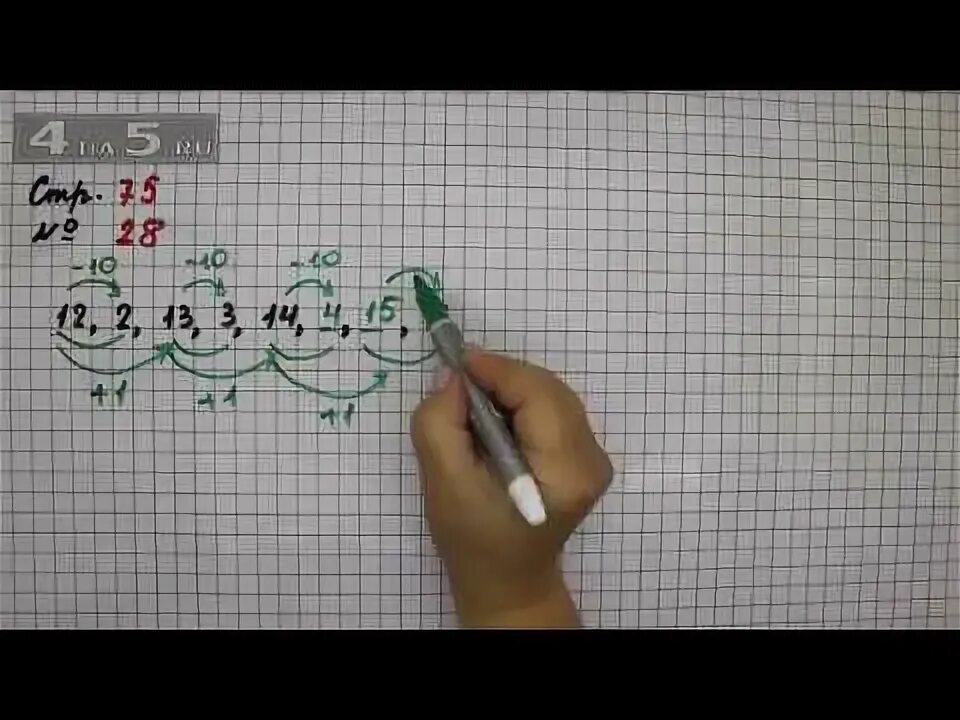 4 НА 5 RU
Стр. 75
№ 28
-10 -10 -10
12, 2, 13, 3, 14, 4, 15,
+1 +1 +1